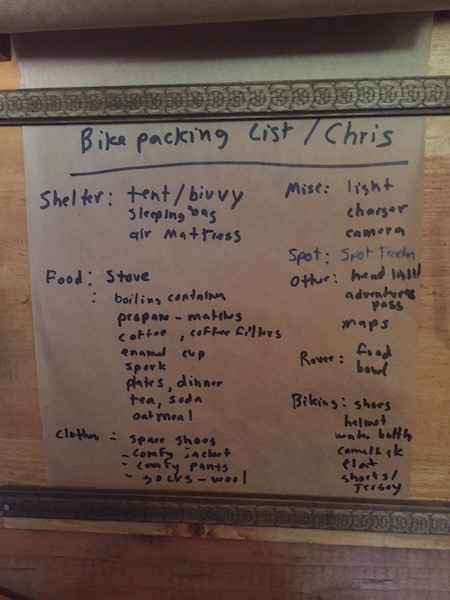 Bikepacking List / Chris
Shelter: tent/bivvy
Sleeping bag
air Mattress
Food: Stove
: boiling container
propane - matches
coffee, coffee filters
enamel cup
spork
plates, dinner
tea, soda
oatmeal
Clothes - spare shoes
- comfy jacket
- comfy pants
- socks - wool
Misc: light
charger
camera
Spot: Spot Tracker
Other: head light
adventures
pass
maps
Rover: food
bowl
Biking: shoes
helmet
water bottle
shorts/
Jersey